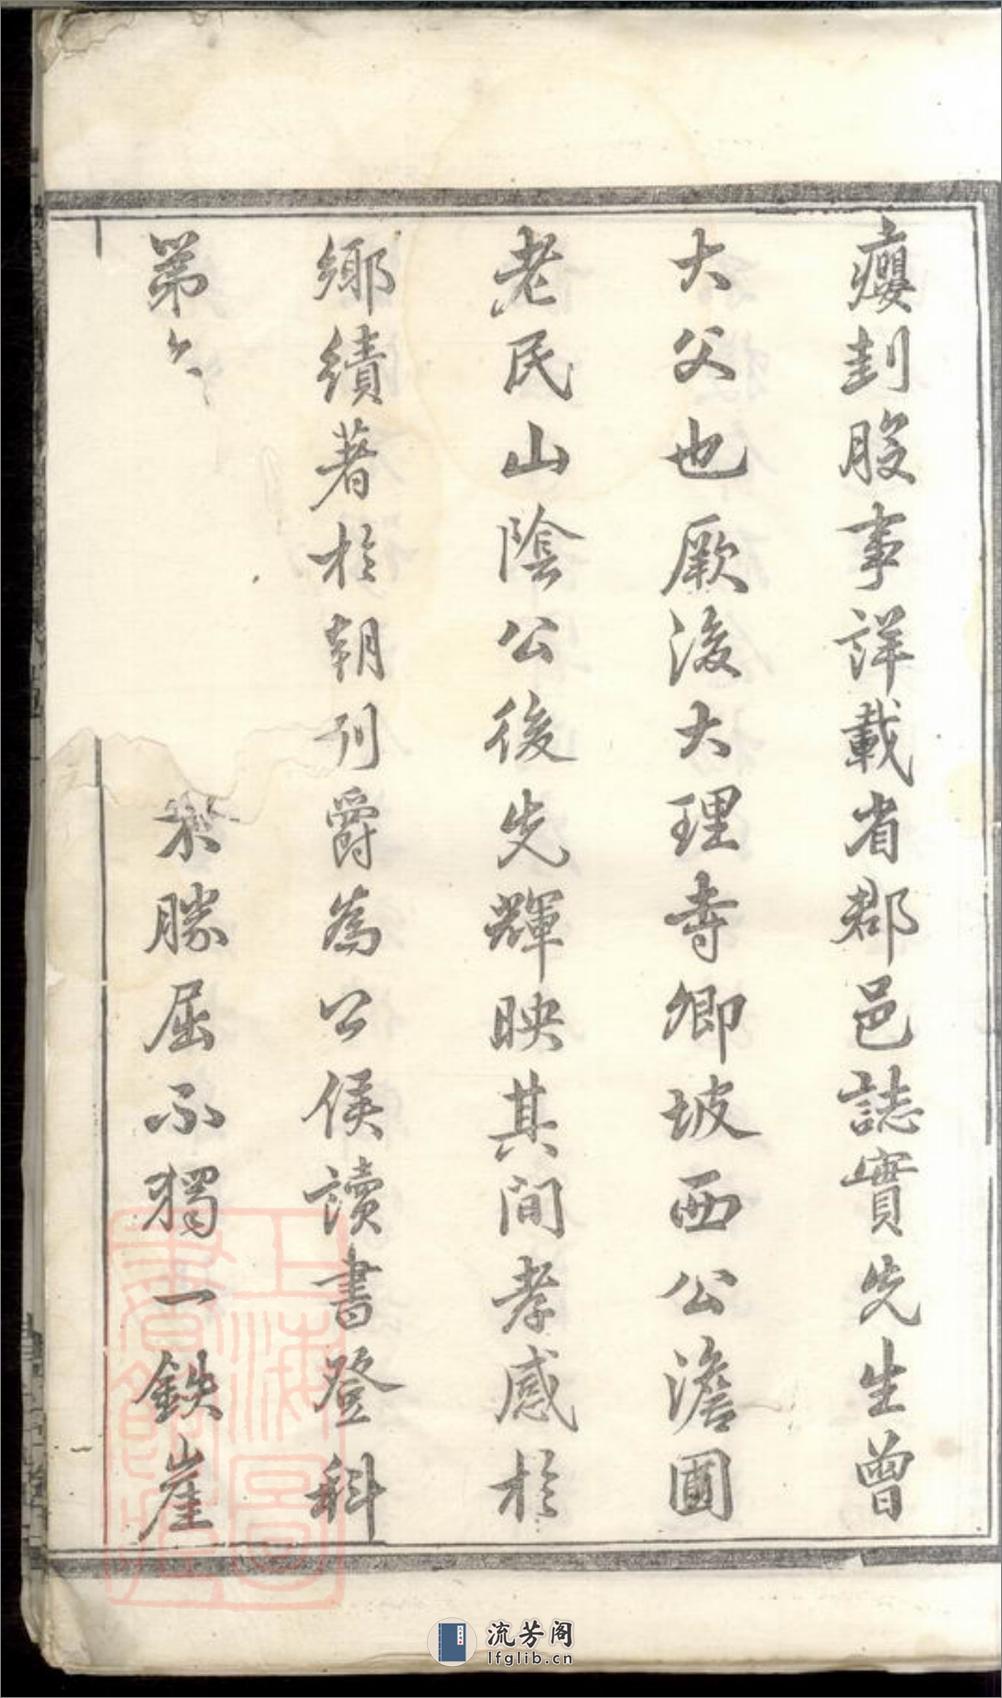 癭刲股事詳載省郡邑誌實先生曾
大父也厥後大理寺卿坡西公澹圃
老民山陰公後先輝映其間孝感於
鄉績著於朝列爵為公侯讀書登科
第
不勝屈不獨一鉄崖
上海圖書館藏
流芳阁
lfglib.cn